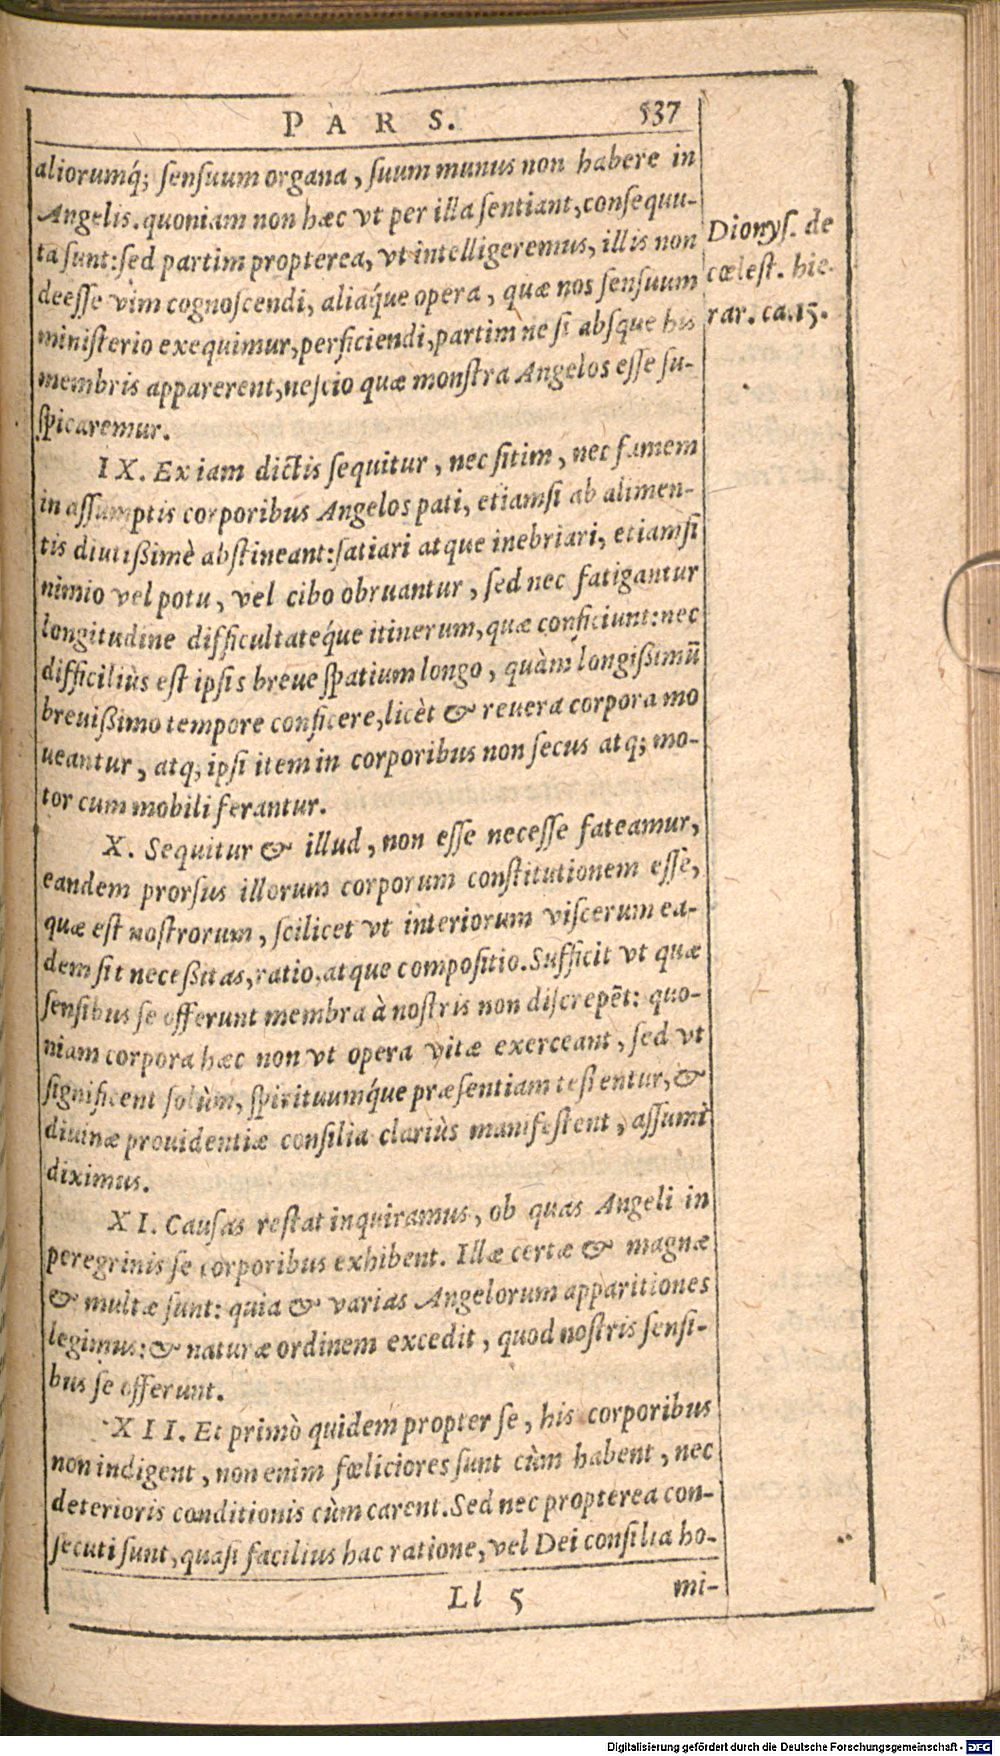 PARS. 537
aliorumq́; ſenſuum organa, ſuum munus non habere in
Angelis. quoniam non hæc vt per illa ſentiant, conſequu-
ta ſunt: ſed partim propterea, vt intelligeremus, illis non
deeſſe vim cognoſcendi, aliaq́ue opera, quæ nos ſenſuum
miniſterio exequimur, perficiendi, partim ne ſi abſque his
membris apparerent, neſcio quæ monſtra Angelos eſſe ſu-
ſpicaremur.
Dionyſ. de
cœleſt. hie-
rar. ca. 15.
IX. Ex iam dictis ſequitur, nec ſitim, nec famem
in aſſumptis corporibus Angelos pati, etiamſi ab alimen-
tis diutißimè abſtineant: ſatiari atque inebriari, etiamſi
nimio vel potu, vel cibo obruantur, ſed nec fatigantur
longitudine difficultateq́ue itinerum, quæ conficiunt: nec
difficiliùs eſt ipſis breue ſpatium longo, quàm longißimū
breuißimo tempore conficere, licèt & reuera corpora mo
ueantur, atq; ipſi item in corporibus non ſecus atq; mo-
tor cum mobili ferantur.
X. Sequitur & illud, non eſſe neceſſe fateamur,
eandem prorſus illorum corporum conſtitutionem eſſe,
quæ eſt noſtrorum, ſcilicet vt interiorum viſcerum ea-
dem ſit neceßitas, ratio, atque compoſitio. Sufficit vt quæ
ſenſibus ſe offerunt membra à noſtris non diſcrepēt: quo-
niam corpora hæc non vt opera vitæ exerceant, ſed vt
ſignificent ſolùm, ſpirituumq́ue præſentiam teſtentur, &
diuinæ prouidentiæ conſilia clariùs manifeſtent, aſſumi
diximus.
XI. Cauſas reſtat inquiramus, ob quas Angeli in
peregrinis ſe corporibus exhibent. Illæ certæ & magnæ
& multæ ſunt: quia & varias Angelorum apparitiones
legimus: & naturæ ordinem excedit, quod noſtris ſenſi-
bus ſe offerunt.
XII. Et primò quidem propter ſe, his corporibus
non indigent, non enim fœliciores ſunt cùm habent, nec
deterioris conditionis cùm carent. Sed nec propterea con-
ſecuti ſunt, quaſi facilius hac ratione, vel Dei conſilia ho-
Ll 5 mi-
Digitalisierung gefördert durch die Deutsche Forschungsgemeinschaft - DFG